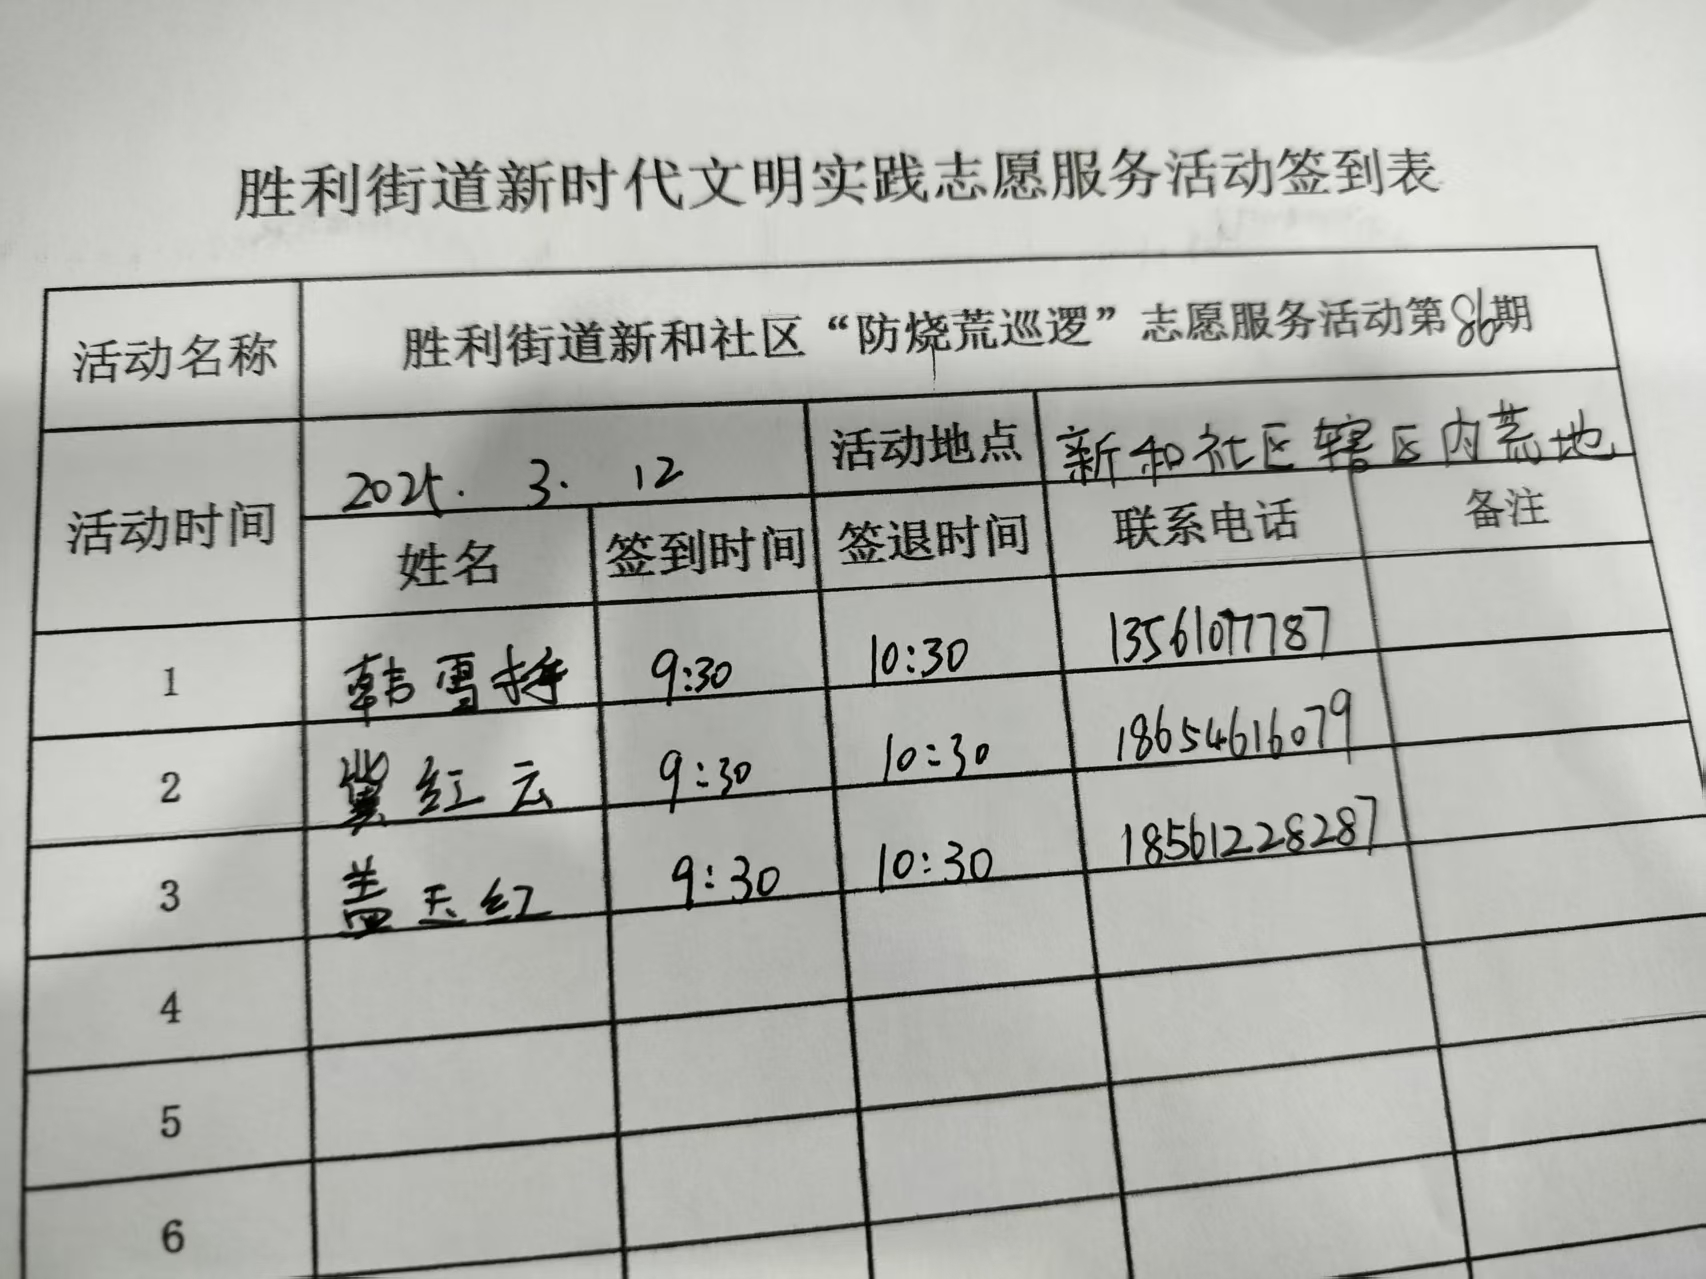 胜利街道新时代文明实践志愿服务活动签到表
活动名称 胜利街道新和社区“防烧荒巡逻”志愿服务活动第86期
活动时间 2025. 3. 12 活动地点 新和社区辖区内荒地
姓名 签到时间 签退时间 联系电话 备注
1 韩雪梅 9:30 10:30 13561077787
2 冀红云 9:30 10:30 18654616079
3 盖玉红 9:30 10:30 18561228287
4
5
6